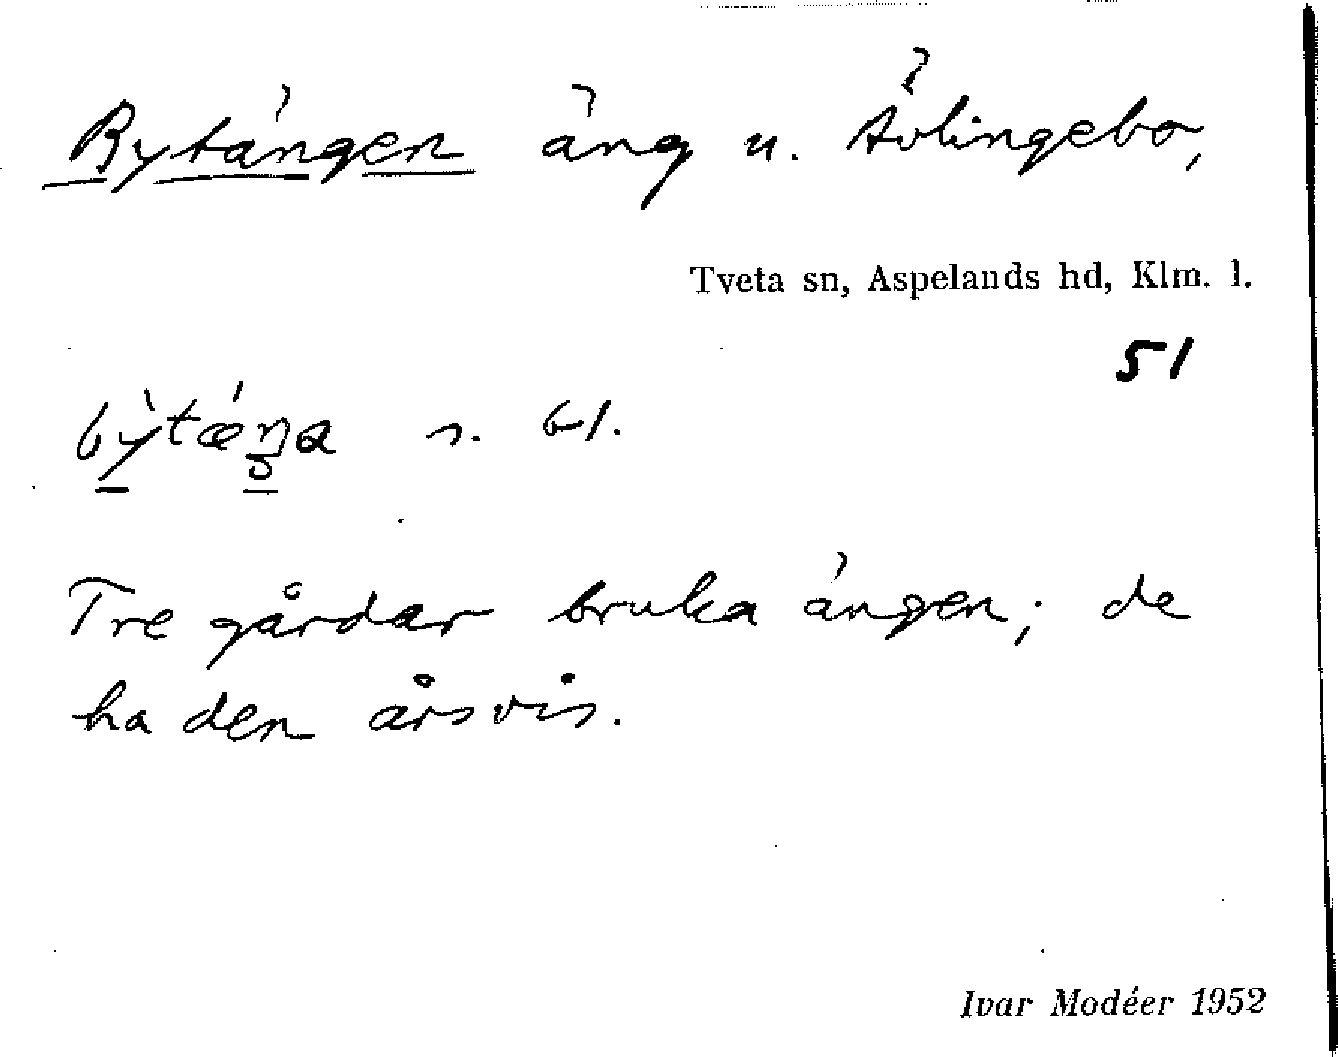 Bytängen äng u. Ävlingebo,
Tveta sn, Aspelands hd, Klm. l.
51
Tre gårdar bruka ängen; de
ha den årsvis.
Ivar Modéer 1952